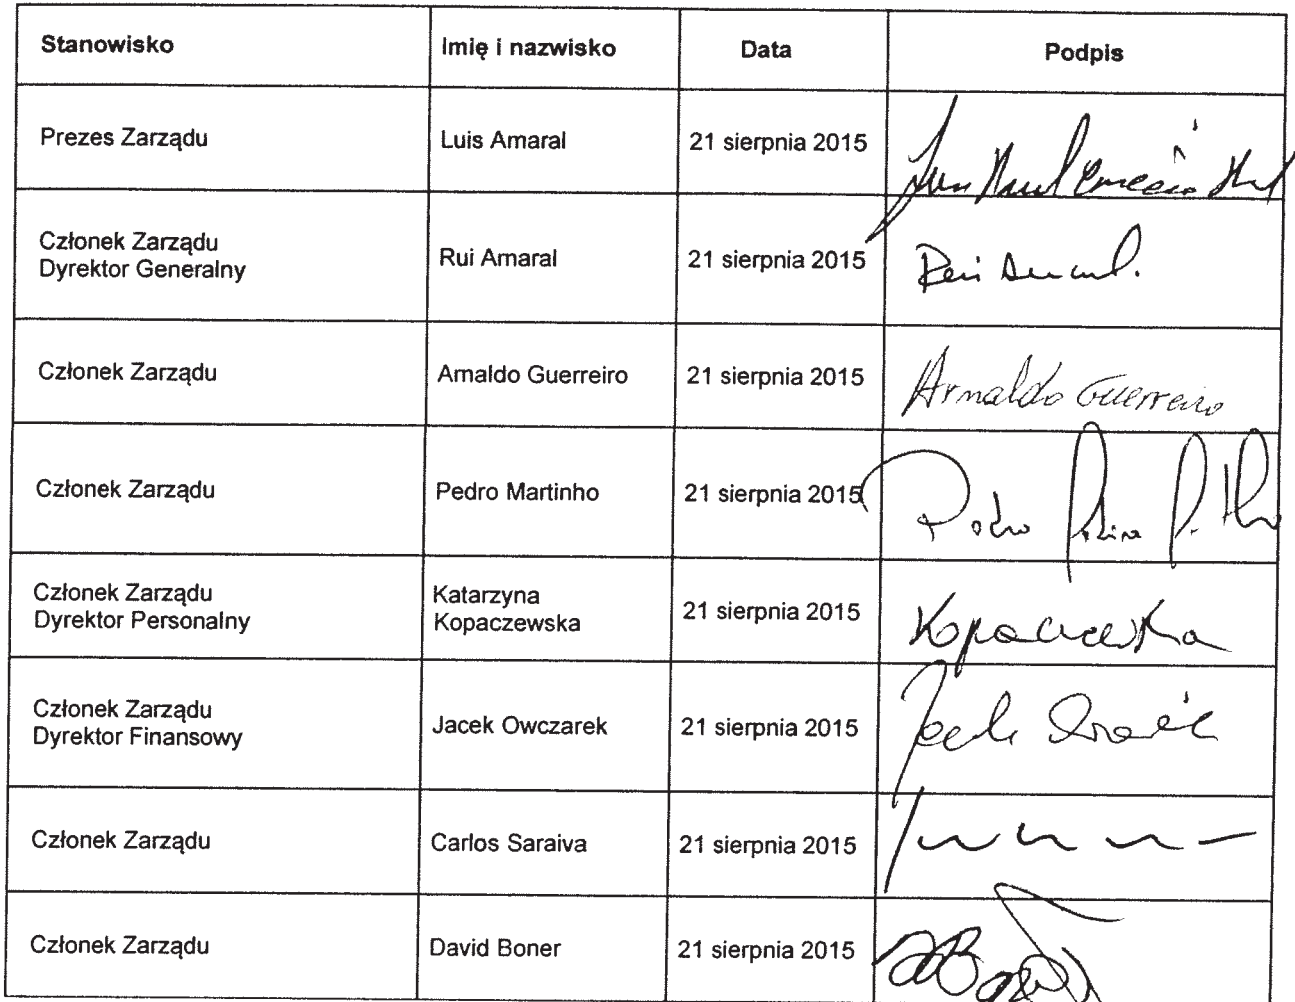 Stanowisko Imię i nazwisko Data Podpis
Prezes Zarządu Luis Amaral 21 sierpnia 2015
Członek Zarządu
Dyrektor Generalny Rui Amaral 21 sierpnia 2015 Rui Amaral.
Członek Zarządu Arnaldo Guerreiro 21 sierpnia 2015 Arnaldo Guerreiro
Członek Zarządu Pedro Martinho 21 sierpnia 2015 Pedro
Członek Zarządu Katarzyna
Dyrektor Personalny Kopaczewska 21 sierpnia 2015 Kopaczewska
Członek Zarządu
Dyrektor Finansowy Jacek Owczarek 21 sierpnia 2015 Jacek
Członek Zarządu Carlos Saraiva 21 sierpnia 2015
Członek Zarządu David Boner 21 sierpnia 2015